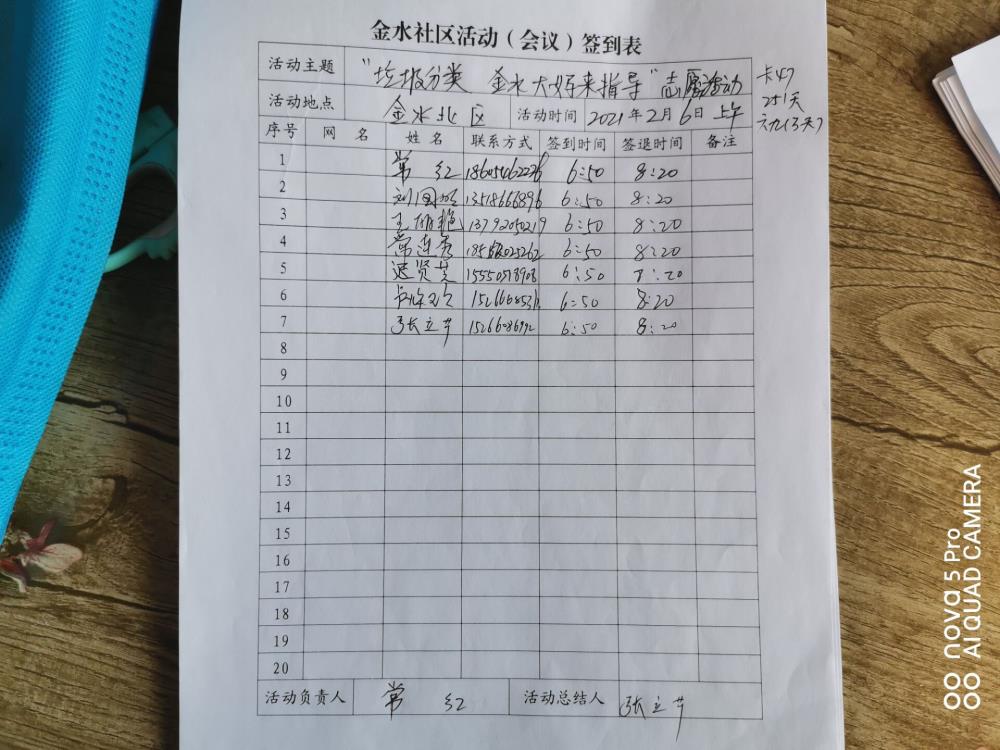 金水社区活动（会议）签到表
活动主题 "垃圾分类 金水大好来指导"志愿活动
卡47
251天
活动地点 金水北区 活动时间 2021年2月6日上午
序号 网名 姓名 联系方式 签到时间 签退时间 备注
1 常红 6:50 8:20
2 13518666896 6:50 8:20
3 13792050219 6:50 8:20
4 常连秀 6:50 8:20
5 6:50 8:20
6 6:50 8:20
7 张立芹 6:50 8:20
8
9
10
11
12
13
14
15
16
17
18
19
20
活动负责人 常红 活动总结人 张立芹
nova 5 Pro
AI QUAD CAMERA